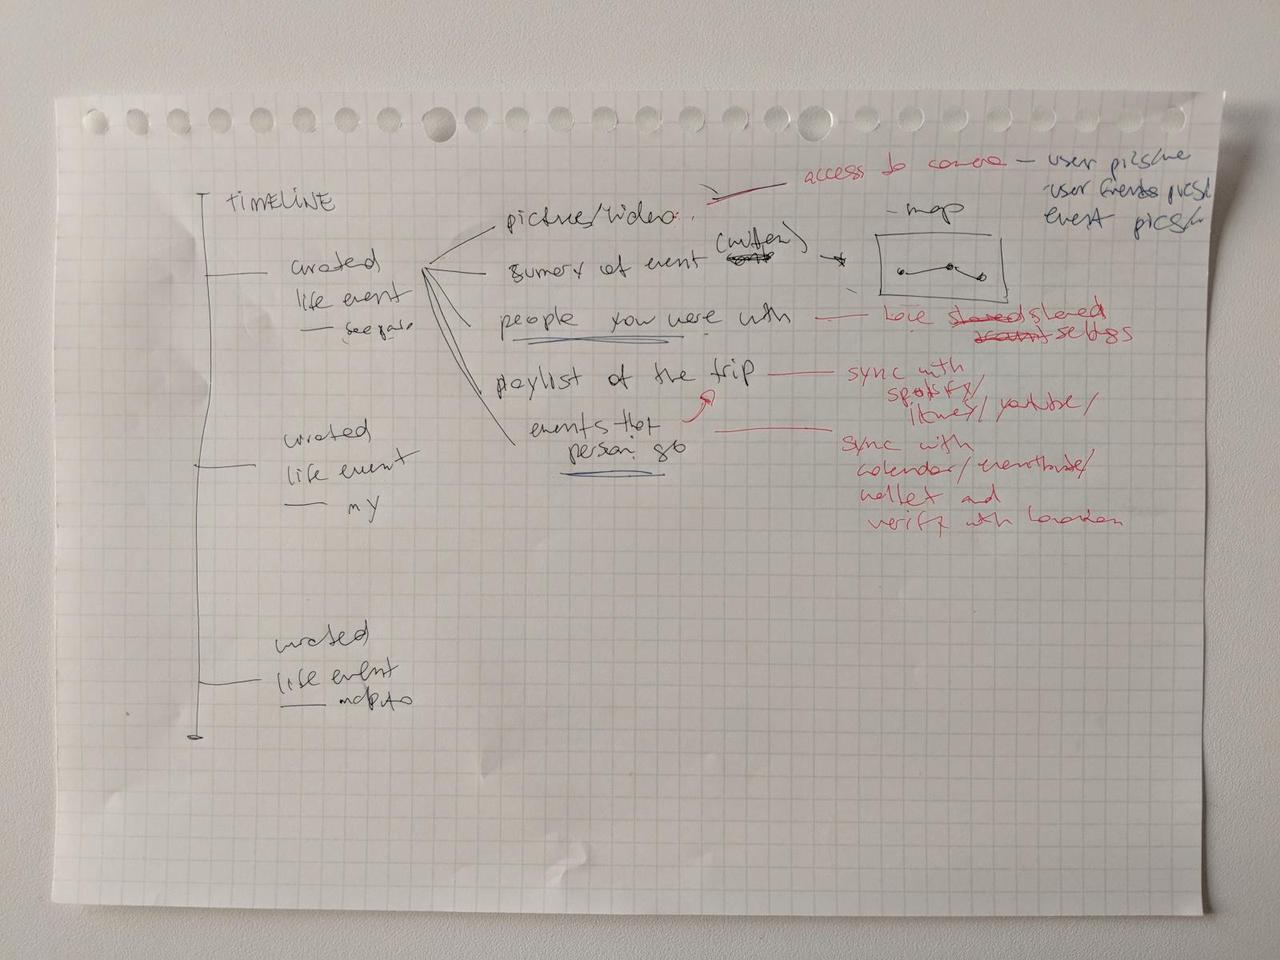 TIMELINE
curated
life event
curated
life event
— my
curated
life event
pictures/video
sumery of event (written)
people you were with
playlist of the trip
events that
person go
access to camera — user pics/
- user friends pics/
event pics/
- map
shared
settings
sync with
spotify/
itunes/youtube/
sync with
calendar/eventbrite/
wallet and
verify with location